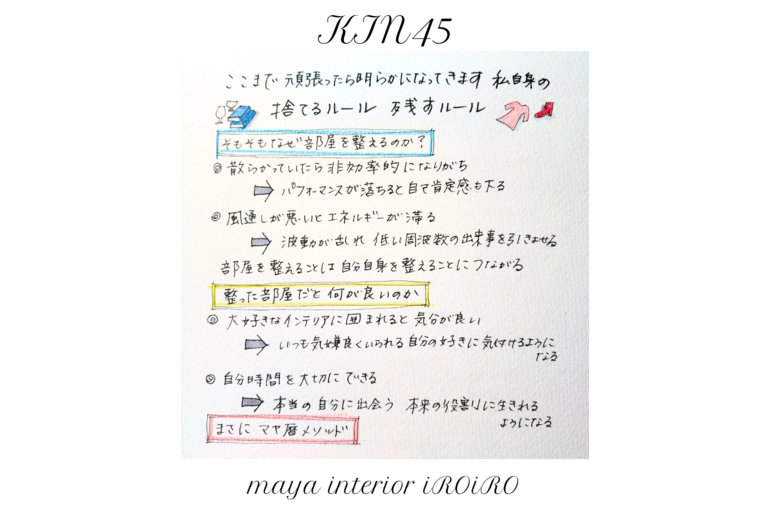 KIN45
ここまで 頑張ったら明らかになってきます 私自身の
捨てるルール 残すルール
そもそもなぜ部屋を整えるのか？
◎ 散らかっていたら非効率的になりがち
⇨ パフォーマンスが落ちると自己肯定感も下る
◎ 風通しが悪いとエネルギーが滞る
⇨ 波動が乱れ 低い周波数の出来事を引きよせる
部屋を整えることは自分自身を整えることにつながる
整った部屋だと何が良いのか
◎ 大好きなインテリアに囲まれると気分が良い
⇨ いつも気嫌良くいられる自分の好きに気付けるように
なる
◎ 自分時間を大切にできる
⇨ 本当の自分に出会う 本来の役割りに生きれる
ようになる
まさに マヤ暦メソッド
maya interior iROiRO